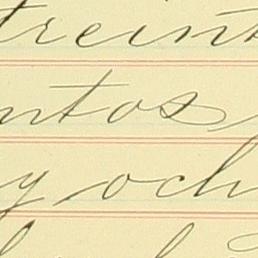 treint
ntos
y och